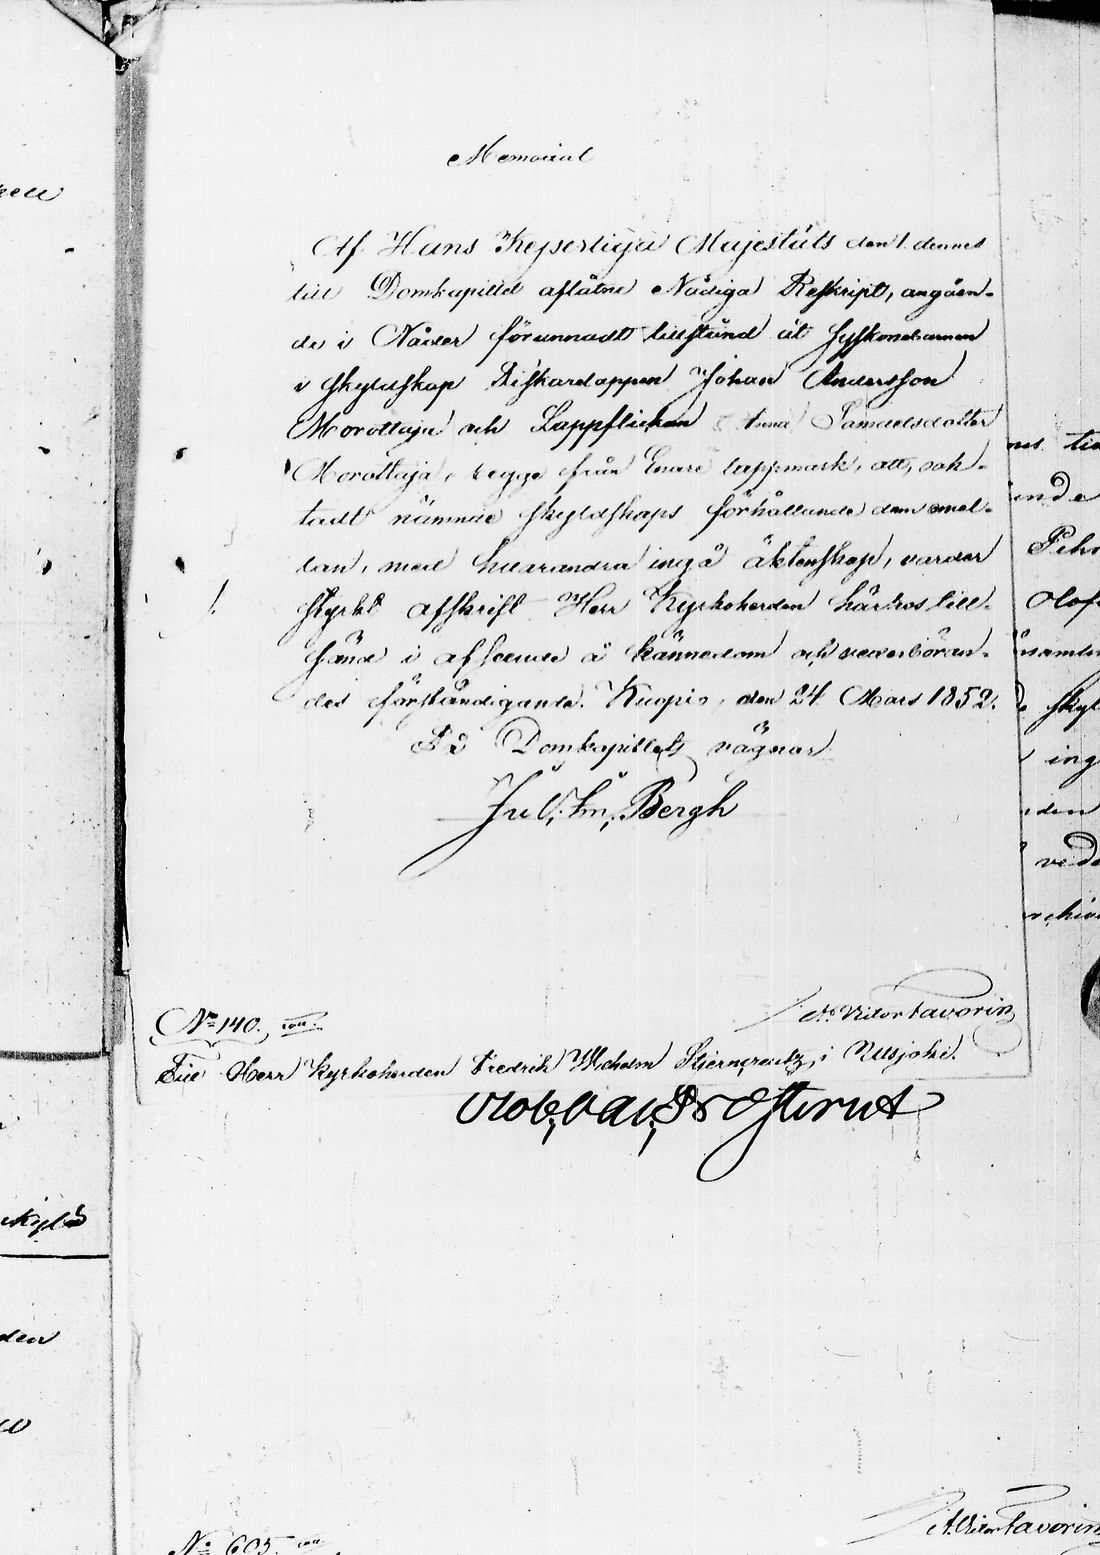 Memorial
Af Hans Kejserliga Majestäts den 1. dennes
till Domkapitlet aflåtne Nådiga Reskript, angåen-
de i Nåder förunnadt tillstånd åt Syskonebarnen
i skyldskap Fiskarelappen Johan Andersson
Morottaja och Lappflickan Anna Samuelsdotter
Morottaja, begge från Enare lappmark, att, oak-
tadt nämnde skyldskaps förhållande dem emel-
lan, med hvarandra ingå äktenskap, varder
styrkt afskrift Herr Kyrkoherden härhos till-
sänd i afseende å kännedom och vederböran-
des förständigande. Kuopio, den 24 Mars 1852.
På Domkapitlets vägnar
Jul. Im. Bergh
A. Victor Favorin
N:o 140.
Till Herr Kyrkoherden Fredrik Wilhelm Stjerncreutz, i Utsjoki.
A. Victor Favorin
N:o 605.